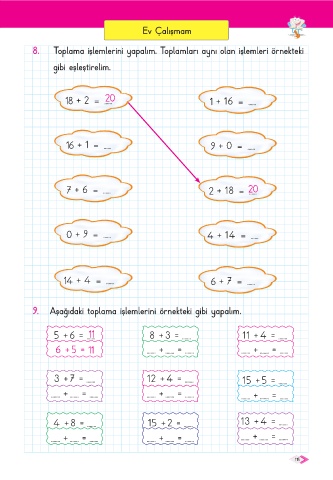 Ev Çalışmam
8. Toplama işlemlerini yapalım. Toplamları aynı olan işlemleri örnekteki
gibi eşleştirelim.
18 + 2 = 20
1 + 16 = __
16 + 1 = __
9 + 0 = __
7 + 6 = __
2 + 18 = 20
0 + 9 = __
4 + 14 = __
14 + 4 = __
6 + 7 = __
9. Aşağıdaki toplama işlemlerini örnekteki gibi yapalım.
5 + 6 = 11 8 + 3 = __ 11 + 4 = __
6 + 5 = 11 __ + __ = __ __ + __ = __
3 + 7 = __ 12 + 4 = __ 15 + 5 = __
__ + __ = __ __ + __ = __ __ + __ = __
4 + 8 = __ 15 + 2 = __ 13 + 4 = __
__ + __ = __ __ + __ = __ __ + __ = __